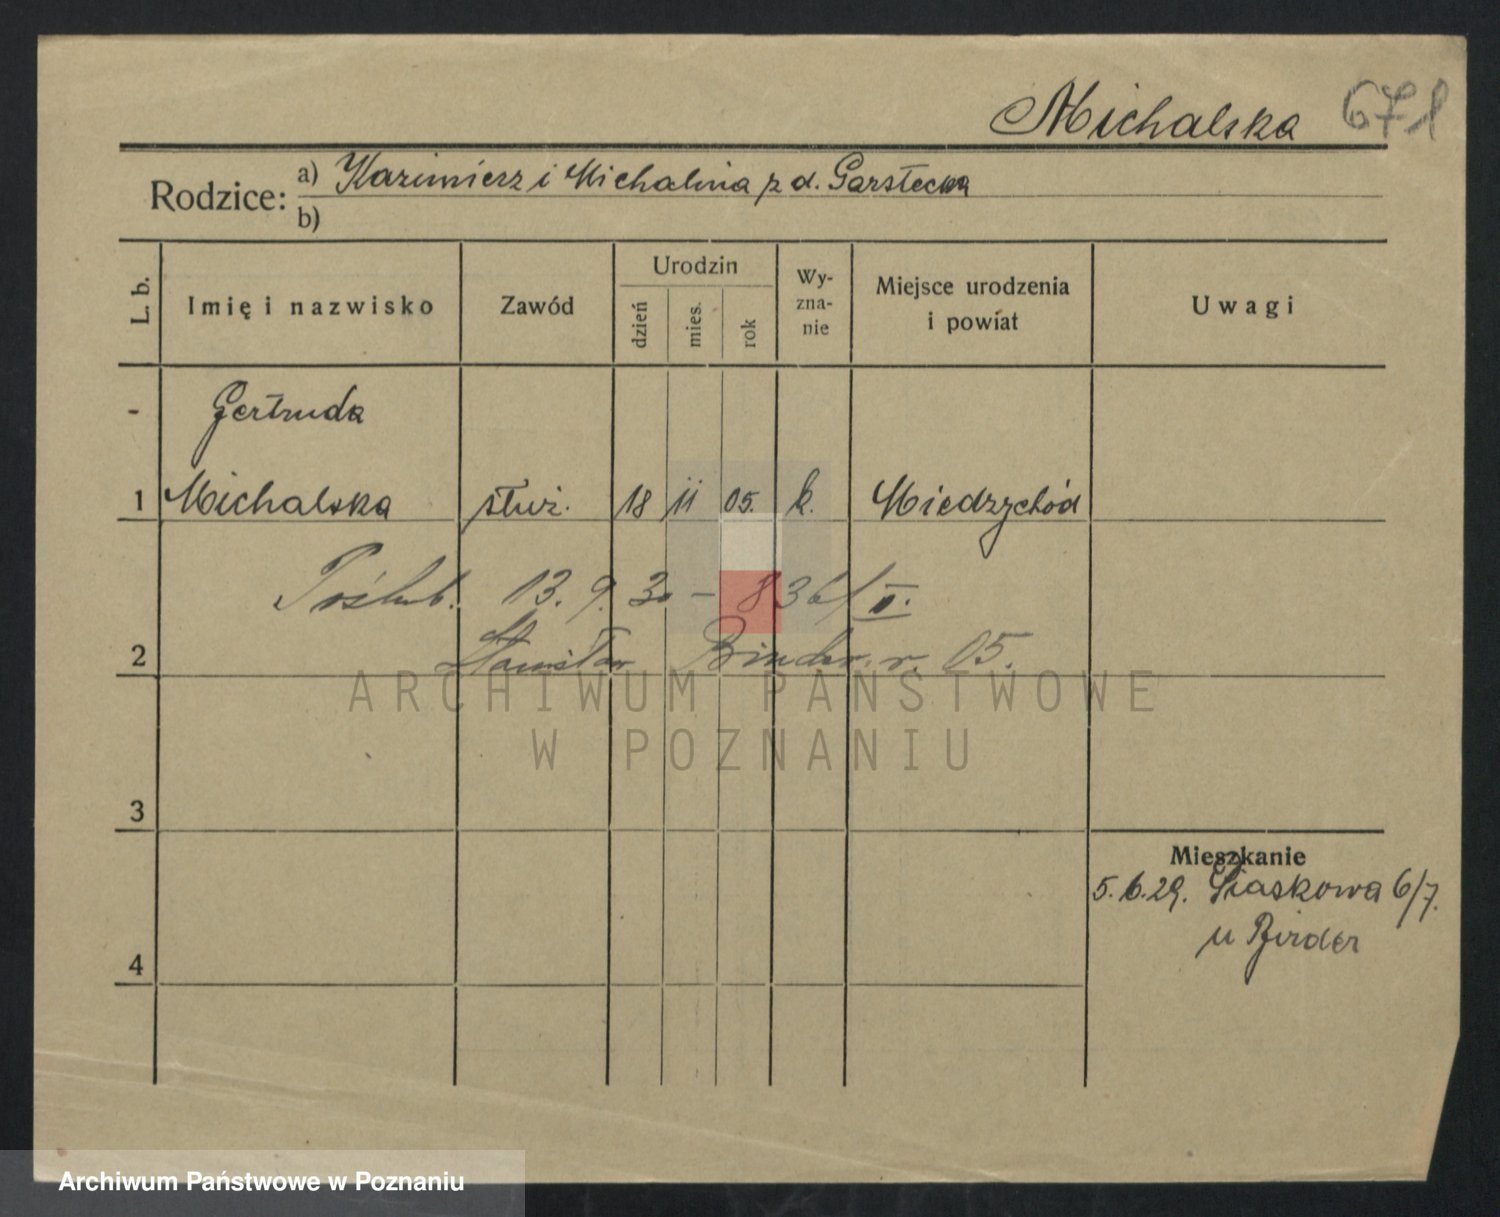 Michalska 671
Rodzice: a) Kazimierz i Michalina z d. Garstecka
b)
L. b. Imię i nazwisko Zawód Urodzin dzień mies. rok Wyznanie Miejsce urodzenia i powiat Uwagi
- Gertruda
1 Michalska służ. 18 11 05. k. Miedzychód
Poślub. 13. 9. 30 - 836/II.
2 Stanisław Binder r. 05.
ARCHIWUM PAŃSTWOWE
W POZNANIU
3
Mieszkanie
5.6.29. Piaskowa 6/7.
u Binder
4
Archiwum Państwowe w Poznaniu